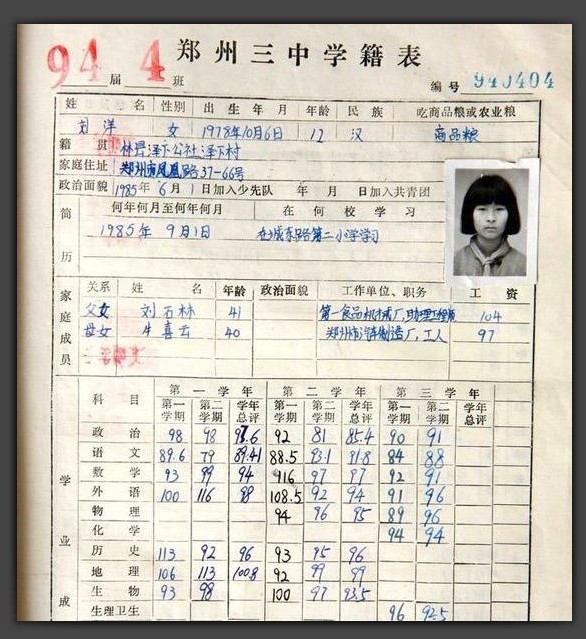 94届 4班 郑州三中学籍表
编号 940404
姓名 性别 出生年月 年龄 民族 吃商品粮或农业粮
刘洋 女 1978年10月6日 12 汉 商品粮
籍贯 林县泽下公社泽下村
家庭住址 郑州市凤凰路37-66号
政治面貌 1985年6月1日加入少先队 年 月 日加入共青团
简历 何年何月至何年何月 在何校学习
1985年9月1日 在城东路第二小学学习
家庭成员 关系 姓名 年龄 政治面貌 工作单位、职务 工资
父女 刘石林 41 第一食品机械厂,助理工程师 104
母女 牛喜云 40 郑州市汽车制造厂,工人 97
学业成
科目 第一学年 第二学年 第三学年
第一学期 第二学期 学年总评 第一学期 第二学期 学年总评 第一学期 第二学期 学年总评
政治 98 98 97.6 92 81 85.4 90 91
语文 89.6 79 89.41 88.5 93.1 91.8 84 88
数学 93 99 94 916 97 97 92 91
外语 100 116 98 108.5 92 94 91 96
物理 94 96 95 89 96
化学 94 94
历史 113 92 96 93 95 96
地理 106 113 100.8 92 99 99
生物 93 98 100 97 93.5
生理卫生 96 92.5